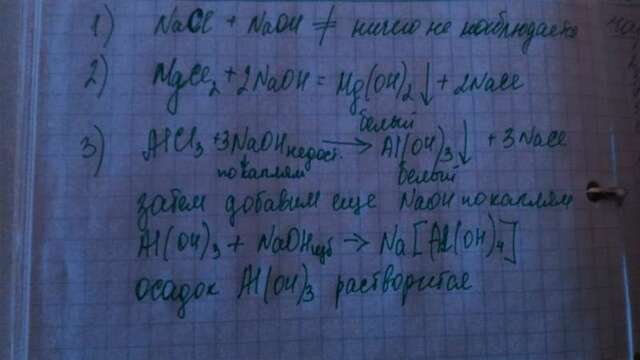 1) NaCl + NaOH ≠ ничего не наблюдаем
2) MgCl₂ + 2NaOH = Mg(OH)₂↓ + 2NaCl
белый
3) AlCl₃ + 3NaOH недост. → Al(OH)₃↓ + 3NaCl
по каплям белый
затем добавим еще NaOH по каплям
Al(OH)₃ + NaOH изб → Na[Al(OH)₄]
осадок Al(OH)₃ растворится